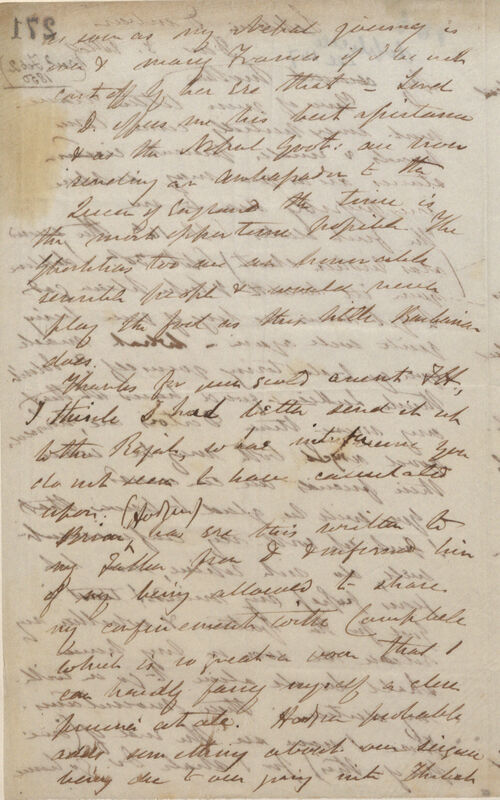 271
as soon as my Nepal journey is
over & many Francs if I be not
cast off by her ere that – Lord
D. offers me his best assistance
& as the Nepal Govt: are now
sending an ambassador to the
Queen of England the time is
the most opportune possible. The
Ghorkhas too are an honorable
sensible people & would never
play the fool as this little Barbarian
does.
Thanks for your scold anent
I think I had better send it up
to the Rajah, whose interference you
do not seem to have calculated
upon. (Hodgson)
Brian has ere this written to
my Father from D & informed him
of my being allowed to share
my confinement with Campbell
which is so great a boon that I
can hardly fancy myself a close
prisoner at all. Hodgson probably
adds something about our seizure
being due to our going into Thibet